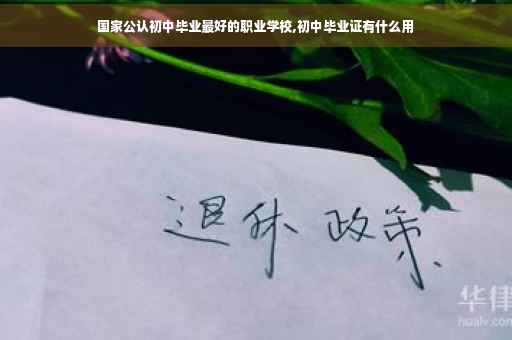 国家公认初中毕业最好的职业学校,初中毕业证有什么用
退休 政策
华律
hualv.com